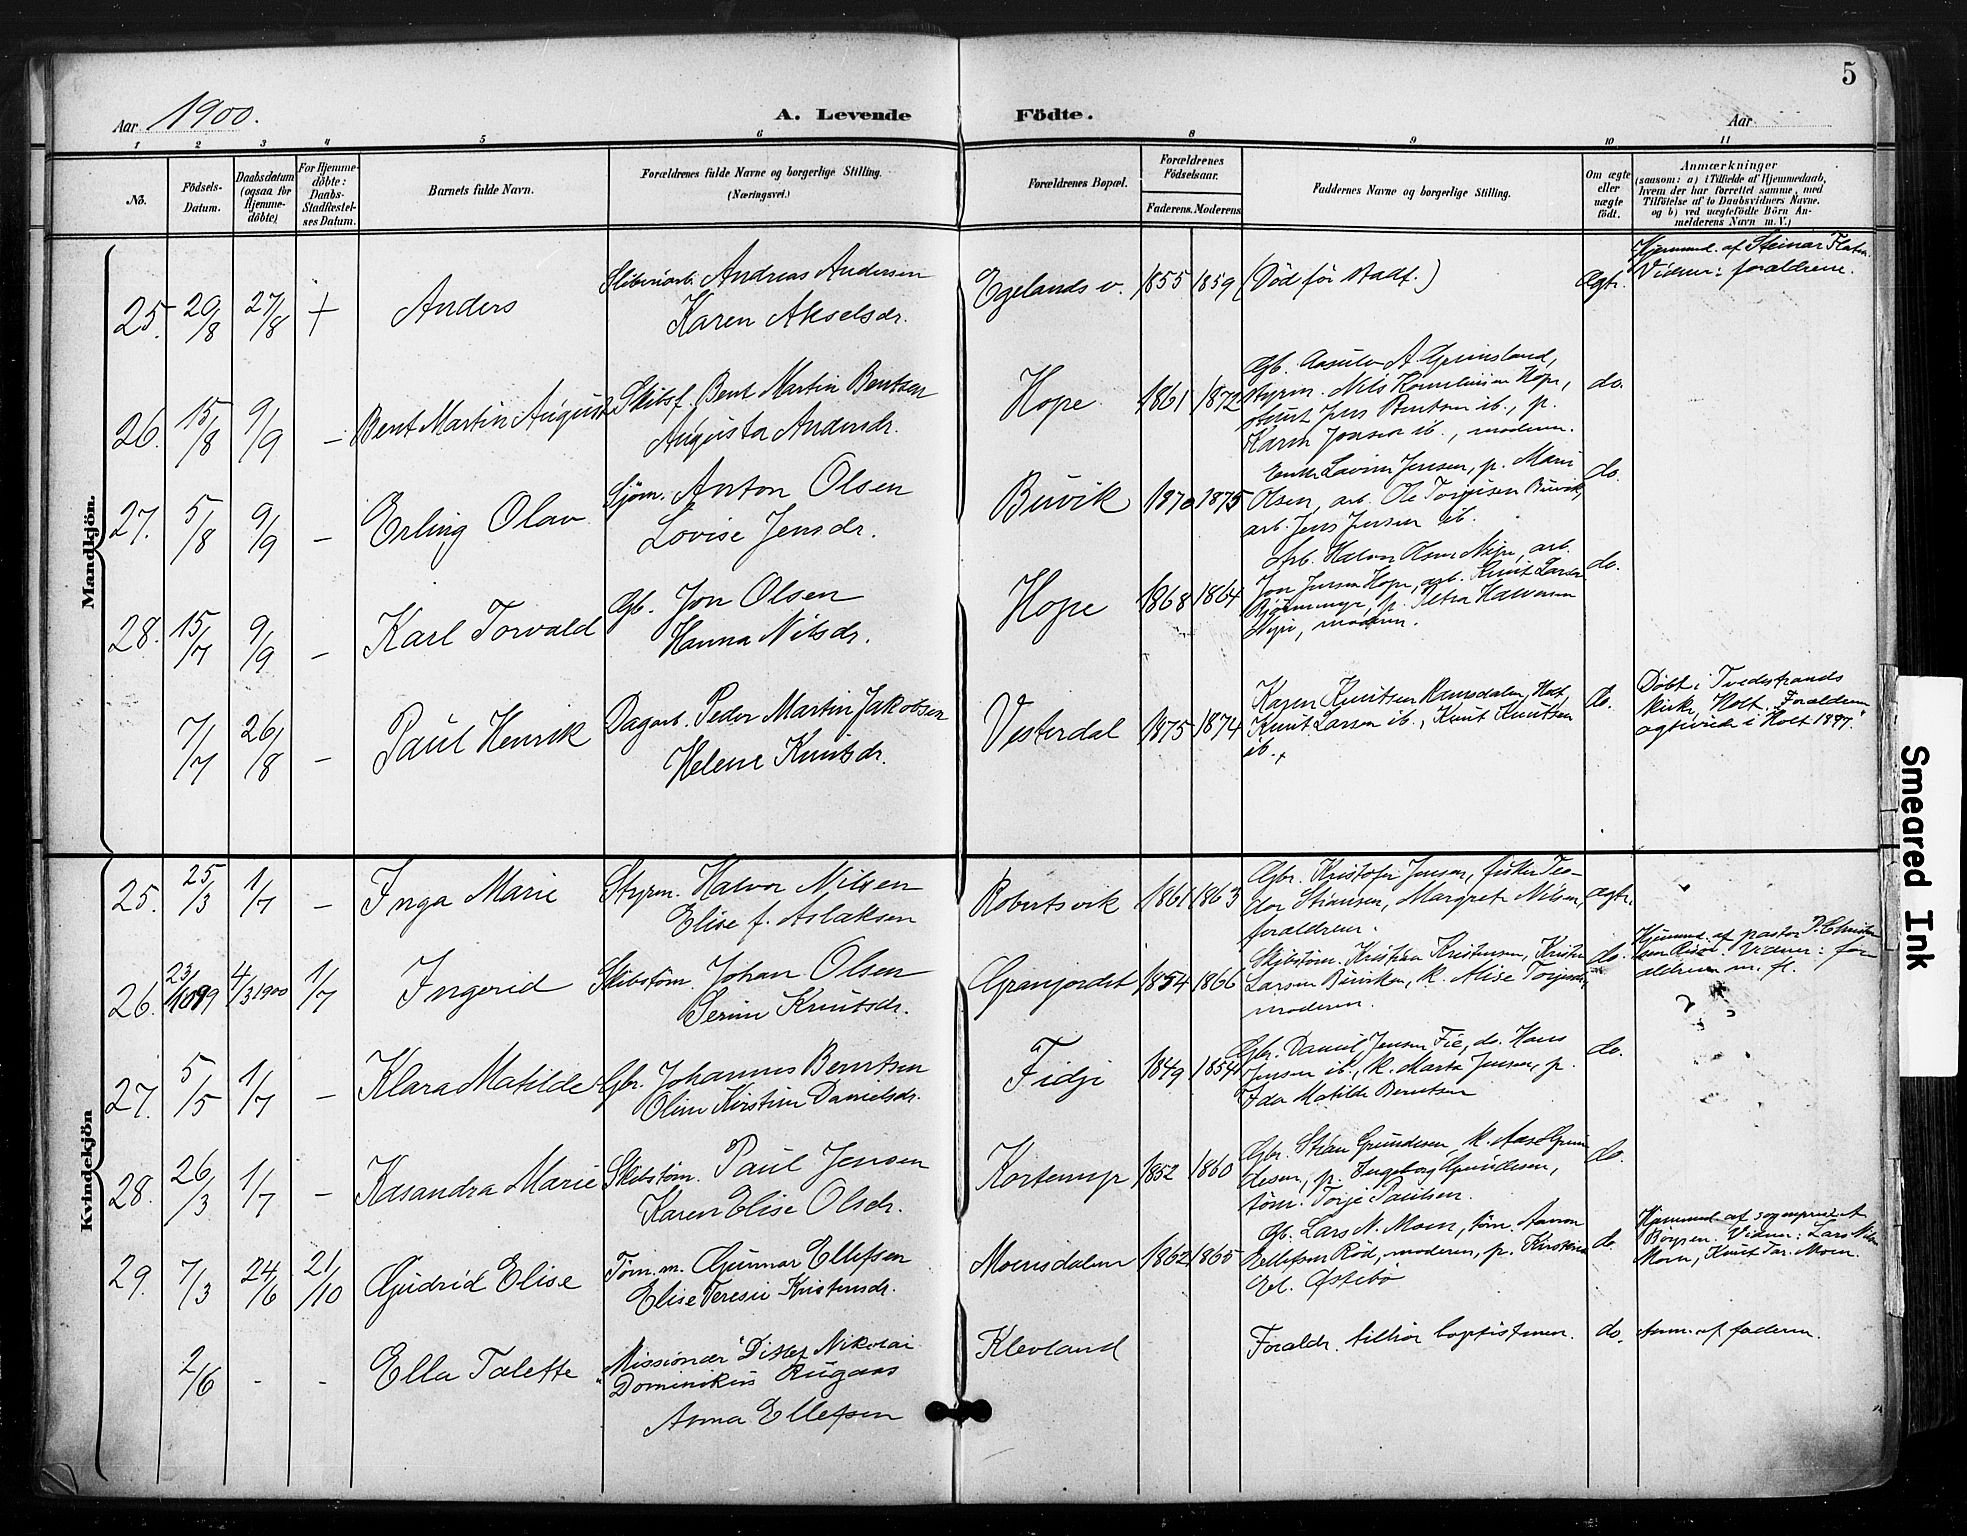 5
Aar 1900.
A. Levende Födte.
Aar
1 2 3 4 5 6 8 9 10 11
No.
Födsels-Datum.
Daabsdatum (ogsaa for Hjemmedöbte)
For Hjemmedöbte: Daabs-Stadfæstelses Datum.
Barnets fulde Navn.
Forældrenes fulde Navne og borgerlige Stilling.
(Næringsvei.)
Forældrenes Bopæl.
Forældrenes Födselsaar.
Faderens. Moderens.
Faddernes Navne og borgerlige Stilling.
Om ægte eller uægte födt.
Anmærkninger
(saasom: a) i Tilfælde af Hjemmedaab,
hvem der har forrettet samme, med
Tilföielse af to Daabsvidners Navne.
og b) ved uægtefödte Börn An-
melderens Navn m. V.)
Mandkjön.
25. 20/8 27/8 + Anders
Andreas Andersen
Karen Akselsdr.
Egelands v. 1855 1859 (Död för stadf.) Ægte.
Hjemmed. af Steinar
Vidner: forældrene.
26. 15/8 9/9 – Bent Martin August
Skibsf. Bent Martin Bentsen
Augusta Andersdr.
Hope 1861 1872
Gb. Aasulv A. Grimsland,
styrm. Nils Korneliusen Hope,
Jens Bentsen ib., p.
Karen Jensen ib., moderen.
do.
27. 5/8 9/9 – Erling Olav
Sjöm. Anton Olsen
Lovise Jensdr.
Buvik 1870 1875
Jensen, p. Marie
Olsen, arb. Ole Torjusen Buvik,
arb. Jens Jensen ib.
do.
28. 15/7 9/9 – Karl Torvald
Gb. Jon Olsen
Hanna Nilsdr.
Hope 1868 1864
Arb. Halvor Olsen arb.
Jon Jensen Hope, arb. Knut Larsen
p. Petra Halvorsen
moderen.
do.
7/7 26/8 – Paul Henrik
Dagarb. Peder Martin Jakobsen
Helene Knutsdr.
Vesterdal 1875 1874
Karen Knutsen Ramsdalen, Holt,
Knut Larsen ib., Knut Knutsen
ib. +
do.
Döbt i Tvedestrands
kirke, Holt. Forældrene
ægteviede i Holt 1897.
Kvindekjön
25. 25/3 1/7 – Inga Marie
Styrm. Halvor Nilsen
Elise f. Aslaksen
Robertsvik 1861 1863
Gbr. Kristofer Jensen, fisker Teo-
dor Stiansen, Margrete Nilsen,
forældrene.
ægte.
26. 23/10 99 4/3 1900 1/7 Ingerid
Skibstöm. Johan Olsen
Serine Knutsdr.
Granjordet 1854 1866
Skibstöm. Kristian Kristensen, Kristen
Larsen Buviken, k. Alise
moderen.
do.
Hjemmed. af pastor P. Christen-
sen Risör. Vidner: for-
ældrene m. fl.
27. 5/5 1/7 – Klara Matilde
Gbr. Johannes Berntsen
Oline Kirstine Danielsdr.
Fidje 1849 1854
Gbr. Daniel Jensen Fie, do. Hans
Jensen ib., k. Marta Jensen, p.
Ida Matilde Berntsen
do.
28. 26/3 1/7 – Kasandra Marie
Skibstöm. Paul Jensen
Karen Elise Olsdr.
Kortemyr 1852 1860
Gbr. Stian Gundesen, k. Aase Gun-
desen, p. Ingeborg Gundesen,
töm. Torje Paulsen.
do.
29. 7/3 24/6 21/10 Gudrid Elise
Töm. m. Gunnar Ellefsen
Elise Teresie Kristensdr.
Moensdalen 1862 1865
Gb. Lars N. Moen, töm. Aanon
Ellefsen Röd, moderen, p. Kirstine
El. Östebö
do.
Hjemmed. af sogneprest
Vidner: Lars
Moen, Knut Tar. Moen.
2/6 - - Ella Talette
Missionær Ditlef Nikolai
Dominikus Rugaas
Anna Ellefsen
Klevland
Forældr. tilhör baptisterne. do. Anm. af faderen.
Smeared Ink